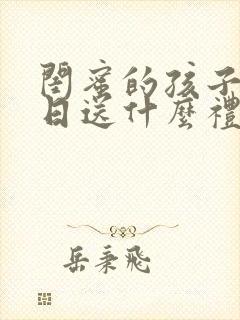 閨蜜的孩子
日送什麼禮
岳秉飛